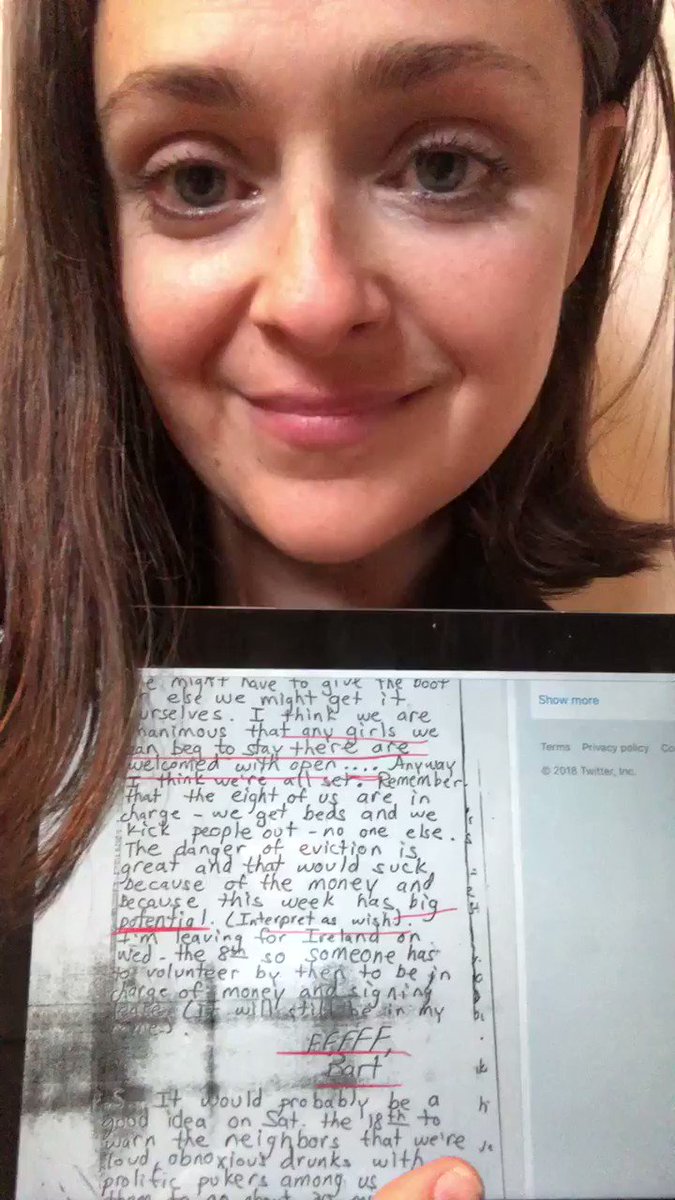 might have to give the boot
else we might get it
urselves. I think we are
nanimous that any girls we
an beg to stay there are
welcomed with open .... Anyway
I think we're all set. Remember
that the eight of us are in
charge - we get beds and we
kick people out - no one else.
The danger of eviction is
great and that would suck
because of the money and
because this week has big
potential. (Interpret as wish).
I'm leaving for Ireland on
Wed - the 8th so someone has
to volunteer by then to be in
charge of money and signing
lease (it will still be in my
name)
FFFFF,
Bart
P.S. It would probably be a
good idea on Sat. the 18th to
warn the neighbors that we're
loud, obnoxious drunks with
prolific pukers among us
Show more
Terms Privacy policy Co
© 2018 Twitter, Inc.